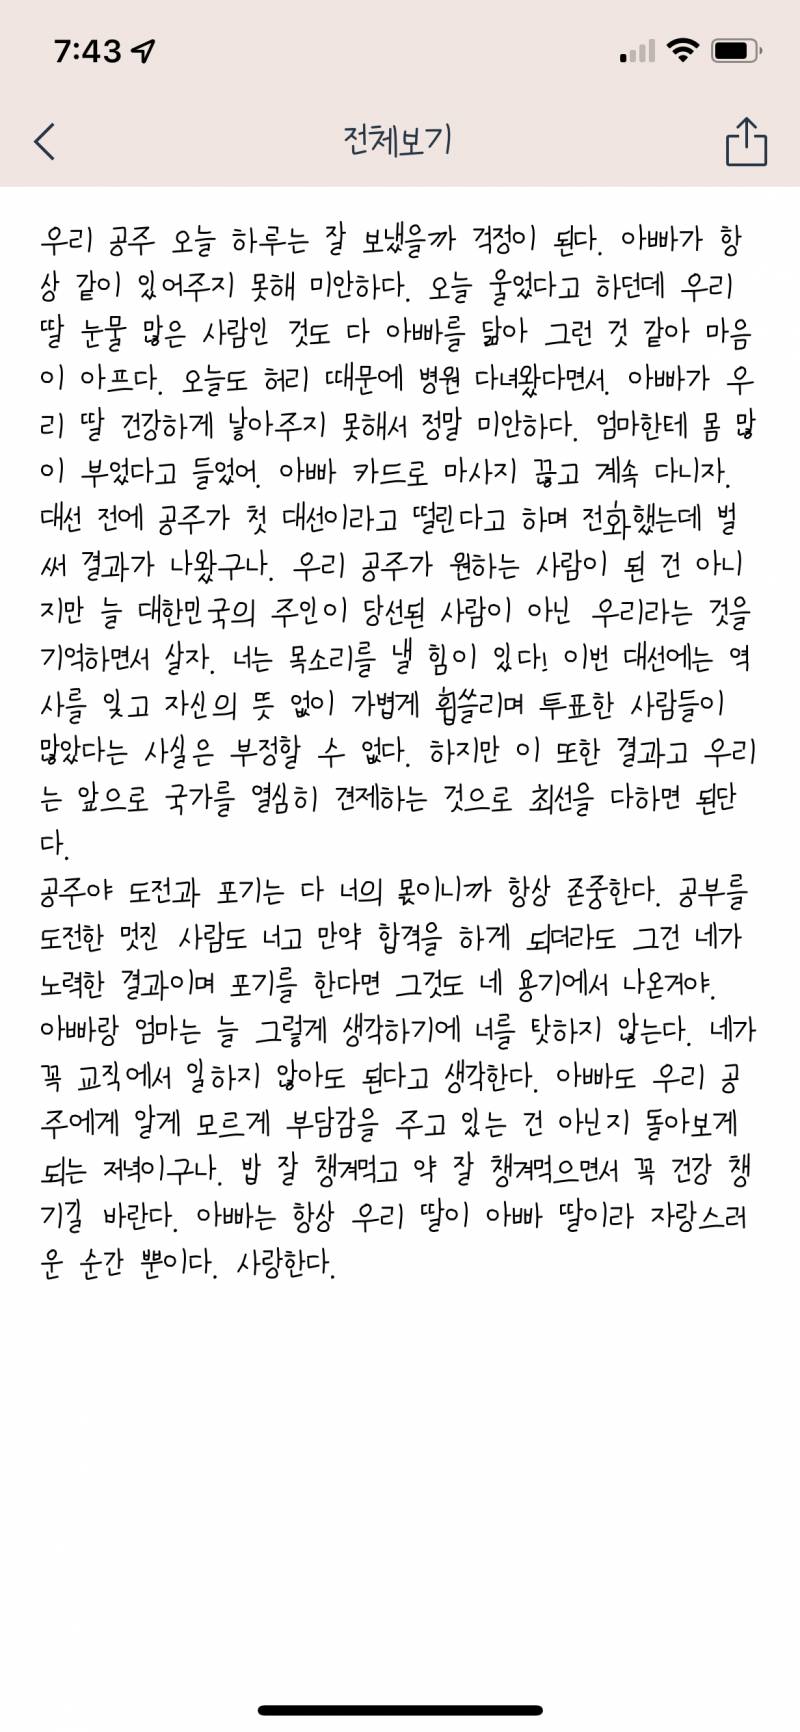 7:43
전체보기
우리 공주 오늘 하루는 잘 보냈을까 걱정이 된다. 아빠가 항
상 같이 있어주지 못해 미안하다. 오늘 울었다고 하던데 우리
딸 눈물 많은 사람인 것도 다 아빠를 닮아 그런 것 같아 마음
이 아프다. 오늘도 허리 때문에 병원 다녀왔다면서. 아빠가 우
리 딸 건강하게 낳아주지 못해서 정말 미안하다. 엄마한테 몸 많
이 부었다고 들었어. 아빠 카드로 마사지 끊고 계속 다니자.
대선 전에 공주가 첫 대선이라고 떨린다고 하며 전화했는데 벌
써 결과가 나왔구나. 우리 공주가 원하는 사람이 된 건 아니
지만 늘 대한민국의 주인이 당선된 사람이 아닌 우리라는 것을
기억하면서 살자. 너는 목소리를 낼 힘이 있다! 이번 대선에는 역
사를 잊고 자신의 뜻 없이 가볍게 휩쓸리며 투표한 사람들이
많았다는 사실은 부정할 수 없다. 하지만 이 또한 결과고 우리
는 앞으로 국가를 열심히 견제하는 것으로 최선을 다하면 된단
다.
공주야 도전과 포기는 다 너의 몫이니까 항상 존중한다. 공부를
도전한 멋진 사람도 너고 만약 합격을 하게 되더라도 그건 네가
노력한 결과이며 포기를 한다면 그것도 네 용기에서 나온거야.
아빠랑 엄마는 늘 그렇게 생각하기에 너를 탓하지 않는다. 네가
꼭 교직에서 일하지 않아도 된다고 생각한다. 아빠도 우리 공
주에게 알게 모르게 부담감을 주고 있는 건 아닌지 돌아보게
되는 저녁이구나. 밥 잘 챙겨먹고 약 잘 챙겨먹으면서 꼭 건강 챙
기길 바란다. 아빠는 항상 우리 딸이 아빠 딸이라 자랑스러
운 순간 뿐이다. 사랑한다.